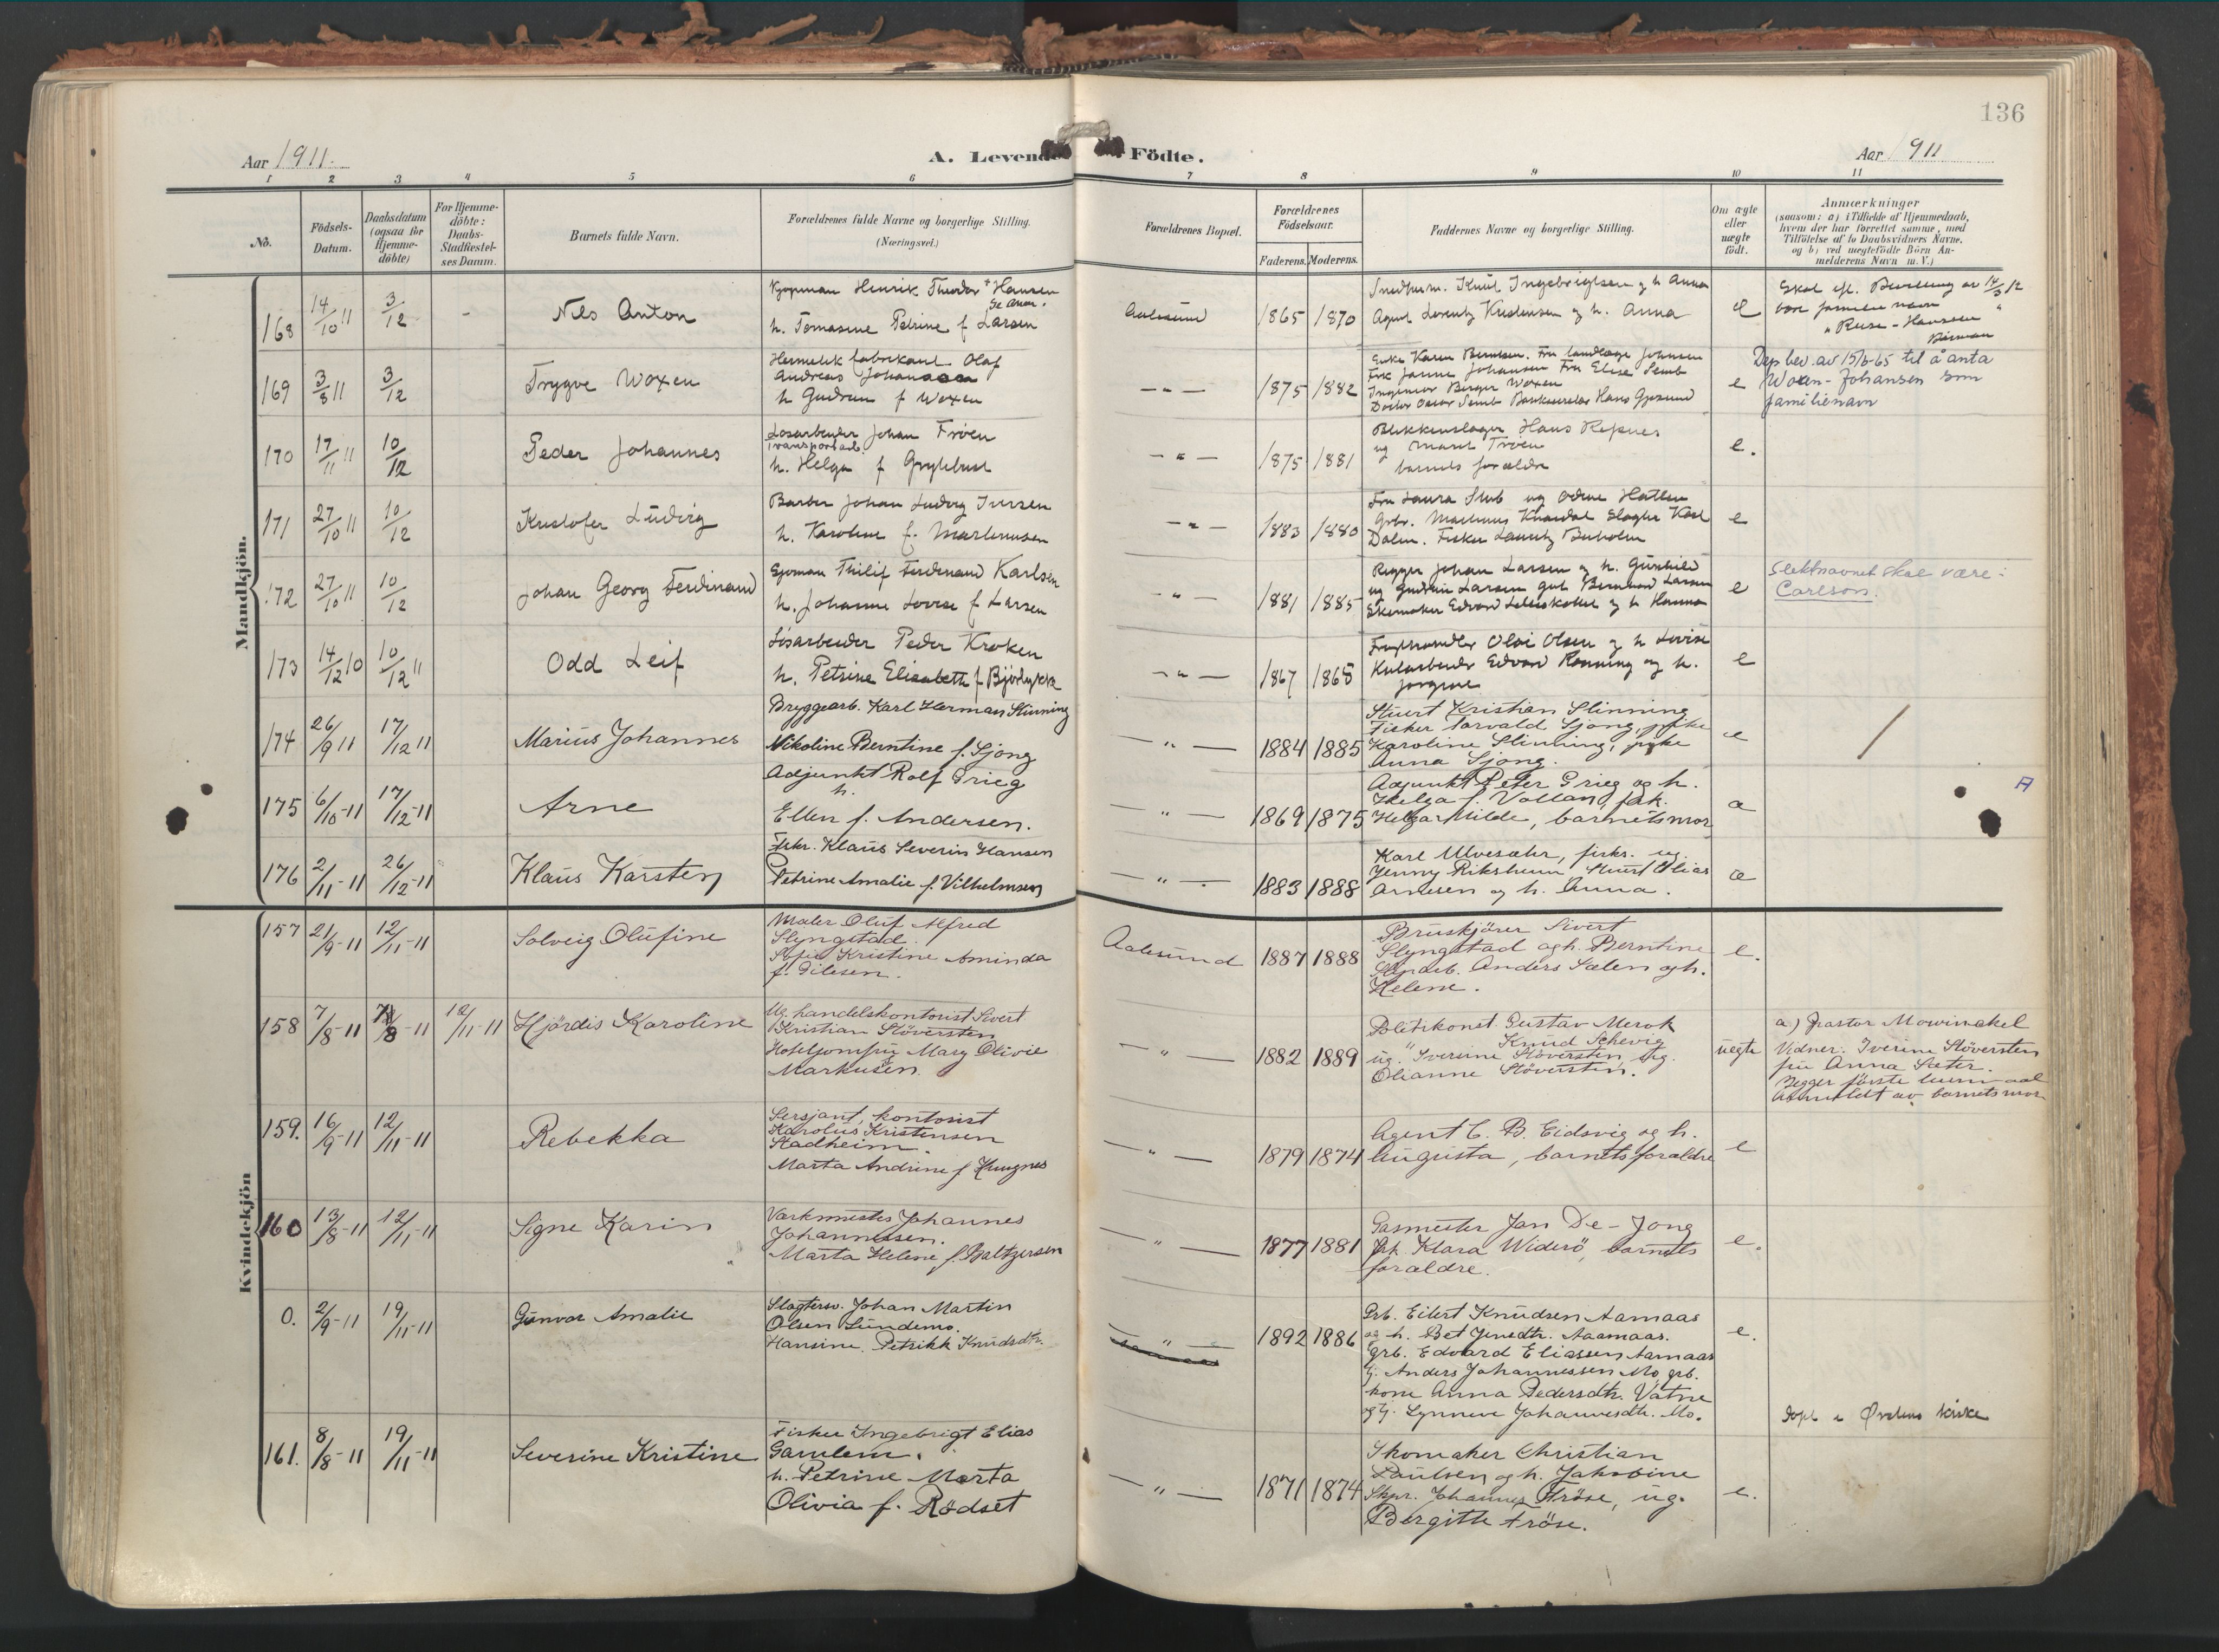 136
Aar 1911.
A. Levende Födte.
Aar 1911
1 2 3 4 5 6 7 8 9 10 11
No.
Födsels-
Datum.
Daabsdatum
(ogsaa for
Hjemme-
döbte)
For Hjemme-
döbte:
Daabs-
Stadfæstel-
ses Datum.
Barnets fulde Navn.
Forældrenes fulde Navne og borgerlige Stilling.
(Næringsvei.)
Forældrenes Bopæl.
Forældrenes
Födselsaar.
Faderens. Moderens.
Faddernes Navne og borgerlige Stilling.
Om ægte
eller
uægte
födt.
Anmærkninger
(saasom: a) i Tilfælde af Hjemmedaab,
hvem der har forrettet samme, med
Tilföielse af to Daabsvidners Navne.
og b) ved uægtefödte Börn An-
melderens Navn m. V.)
Mandkjön.
168 14/10 11 3/12 - Nils Anton
Kjøpman Henrik Theodor Hansen
h. Tomasine Petrine f Larsen
Aalesund 1865 1870
Knut Ingebrigtsen og h Anna
Agent Lorentz Kristensen og h. Anna
e
Skal efl. Bevilling av 14/3 12
bære familienavn
" Ruse-Hanssen "
169 3/8 11 3/12 Trygve Woxen
Hermetik fabrikant Olaf
Andreas Johansen
h Gudrun f Woxen
— " — 1875 1882
Enke Karen Berntsen. Fru landlæge Johnsen
Frk Janne Johansen Fru Elise Semb
Ingeniør Birger Woxen
Doctor Oscar Semb Banksekretær Hans Gjøsund
e
Dep bev. av 15/6-65 til å anta
Woxen-Johansen som
familienavn
170 17/11 11 10/12 Peder Johannes
Løsarbeider Johan Trøen
Transportarb.
h. Helga f Grytebust
— " — 1875 1881
Blikkenslager Hans Rypnes
og Marit Trøen
barnets forældre
e.
171 27/10 11 10/12 Kristofer Ludvig
Barber Johan Ludvig Iversen
h. Karoline f. Martinusen
— " — 1883 1880
Fru Laura Stub og Odine Hatlen
Grbr. Martinus Knardal Slagter Karl
Dalen. Fisker Lauritz Buholm
e
172 27/10 11 10/12 Johan Georg Ferdinand
Sjøman Thilif Ferdinand Karlsen
h. Johanne Lovise f Larsen
— " — 1881 1885
Rigger Johan Larsen og h. Gunhild
og Gudrun Larsen gut Bernhard Larsen
Skomaker Edvard Lilleskotet og h Hanna
e
Slektnavnet skal være:
Carlson.
173 14/12 10 10/12 11 Odd Leif
Løsarbeider Peder Kroken
h. Petrine Elisabeth f Bjørlykke
— " — 1867 1868
Frugthandler Olai Olsen og h Lovise
Kularbeider Edvard Rønning og h.
Jørgine
e
174 26/9 11 17/12 11 Marius Johannes
Bryggearb. Karl Herman Slinning
Nikoline Berntine f. Sjong
— " — 1884 1885
Stuert Kristian Slinning
Fisker Torvald Sjong, pike
Karoline Slinning, pyke
Anna Sjong.
e
175 6/10-11 17/12-11 Arne
Adjunkt Rolf Grieg
h.
Ellen f. Andersen.
— " — 1869 1875
Adjunkt Peter Grieg og h.
Helga f. Vollan, frk.
Helga Milde, barnets mor
æ
A
176 2/11-11 26/12-11 Klaus Karsten
Fiskr. Klaus Severin Hansen
Petrine Amalie f. Vilhelmsen
— " — 1883 1888
Karl Ulvesæter, fisks. ug
Jenny Riksheim Stuert Olias
Arnesen og h. Anna.
æ
Kvindekjön
157 21/9-11 12/11-11 Solveig Olufine
Maler Oluf Alfred
Slyngstad.
Sofie Kristine Aminda
f. Gilesen.
Aalesund 1887 1888
Bruskjörer Sivert
Slyngstad og h. Berntine
Anders Sælen og h.
Helene.
e.
158 7/8-11 7/8-11 12/11-11 Hjördis Karoline
Ug. handelskontorist Sivert
Kristian Stöversten
Hoteljomfru Mary Olivie
Markusen.
— " — 1882 1889
Politikonst. Gustav Merok
" Knud Schevig
ug. Iversine Stöversten, ug.
Olianne Stöversten.
uegte
a) Pastor Mowinckel
Vidner: Iverine Stöversten
fru Anna Sæter.
Begger förste leiermaal
Anmeldt av barnets mor
159. 16/9-11 12/11-11 Rebekka
Sersjant, kontorist
Karolus Kristensen
Stadheim.
Marta Andrine f. Haugnes
— " — 1879 1874
Agent C. B. Eidsvig og h.
Augusta, barnets forældre
e
160 13/8-11 12/11-11 Signe Karin
Værkmester Johannes
Johannessen.
Marta Helene, f. Baltzersen
— " — 1877 1881
Gasmester Jan De-Jong
frk. Klara Widerö, barnets
forældre.
e.
0. 2/9-11 19/11-11 Gunvor Amalie
Slagtersv. Johan Martin
Olsen Lundemo.
Hansine Petrikk Knudsdtr.
— " — 1892 1886
Grb. Eilert Knudsen Aamaas
og h. Bet Jensdtr. Aaamaas.
grb. Edvard Eliassen Aamaas
Anders Johannessen Mo, grb.
kone Anna Pedersdtr. Vatne
og Synneve Johannesdtr. Mo.
e.
döpt i Ørskens kirke
161. 8/8-11 19/11-11 Severine Kristine
Fisker Ingebrigt Elias
Gamlem.
h. Petrine Marta
Olivia f. Rødset
— " — 1871 1874
Skomaker Christian
Paulsen og h. Jakobine
Skpr. Johannes Fröse, ug.
Bergitte Fröse.
e.